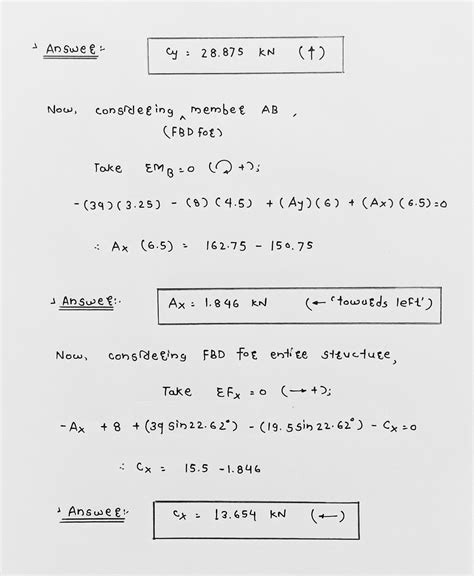 Answer:-
Cy = 28.875 kN (↑)
Now, considering ^ member AB,
(FBD for)
Take ΣM_B = 0 (↻ +);
-(39)(3.25) - (8)(4.5) + (Ay)(6) + (Ax)(6.5) = 0
∴ Ax (6.5) = 162.75 - 150.75
Answer:-
Ax = 1.846 kN (← 'towards left')
Now, considering FBD for entire structure,
Take ΣFx = 0 (→ +);
-Ax + 8 + (39 sin 22.62°) - (19.5 sin 22.62°) - Cx = 0
∴ Cx = 15.5 - 1.846
Answer:-
Cx = 13.654 kN (←)